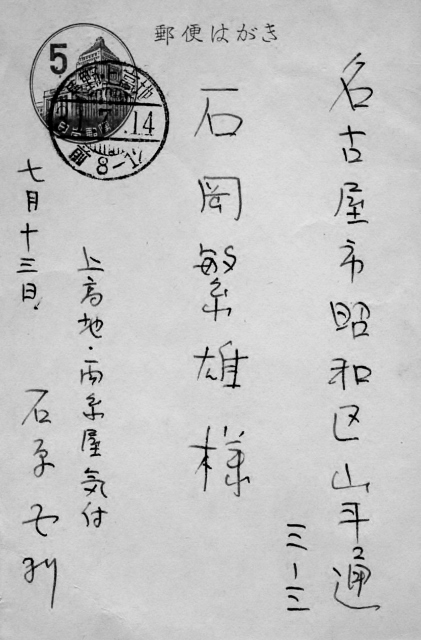 郵便はがき
5
日本郵便
上高地
.14
前8-12
名古屋市昭和区山手通
三-三
石岡繁雄様
上高地・西糸屋気付
七月十三日
石原